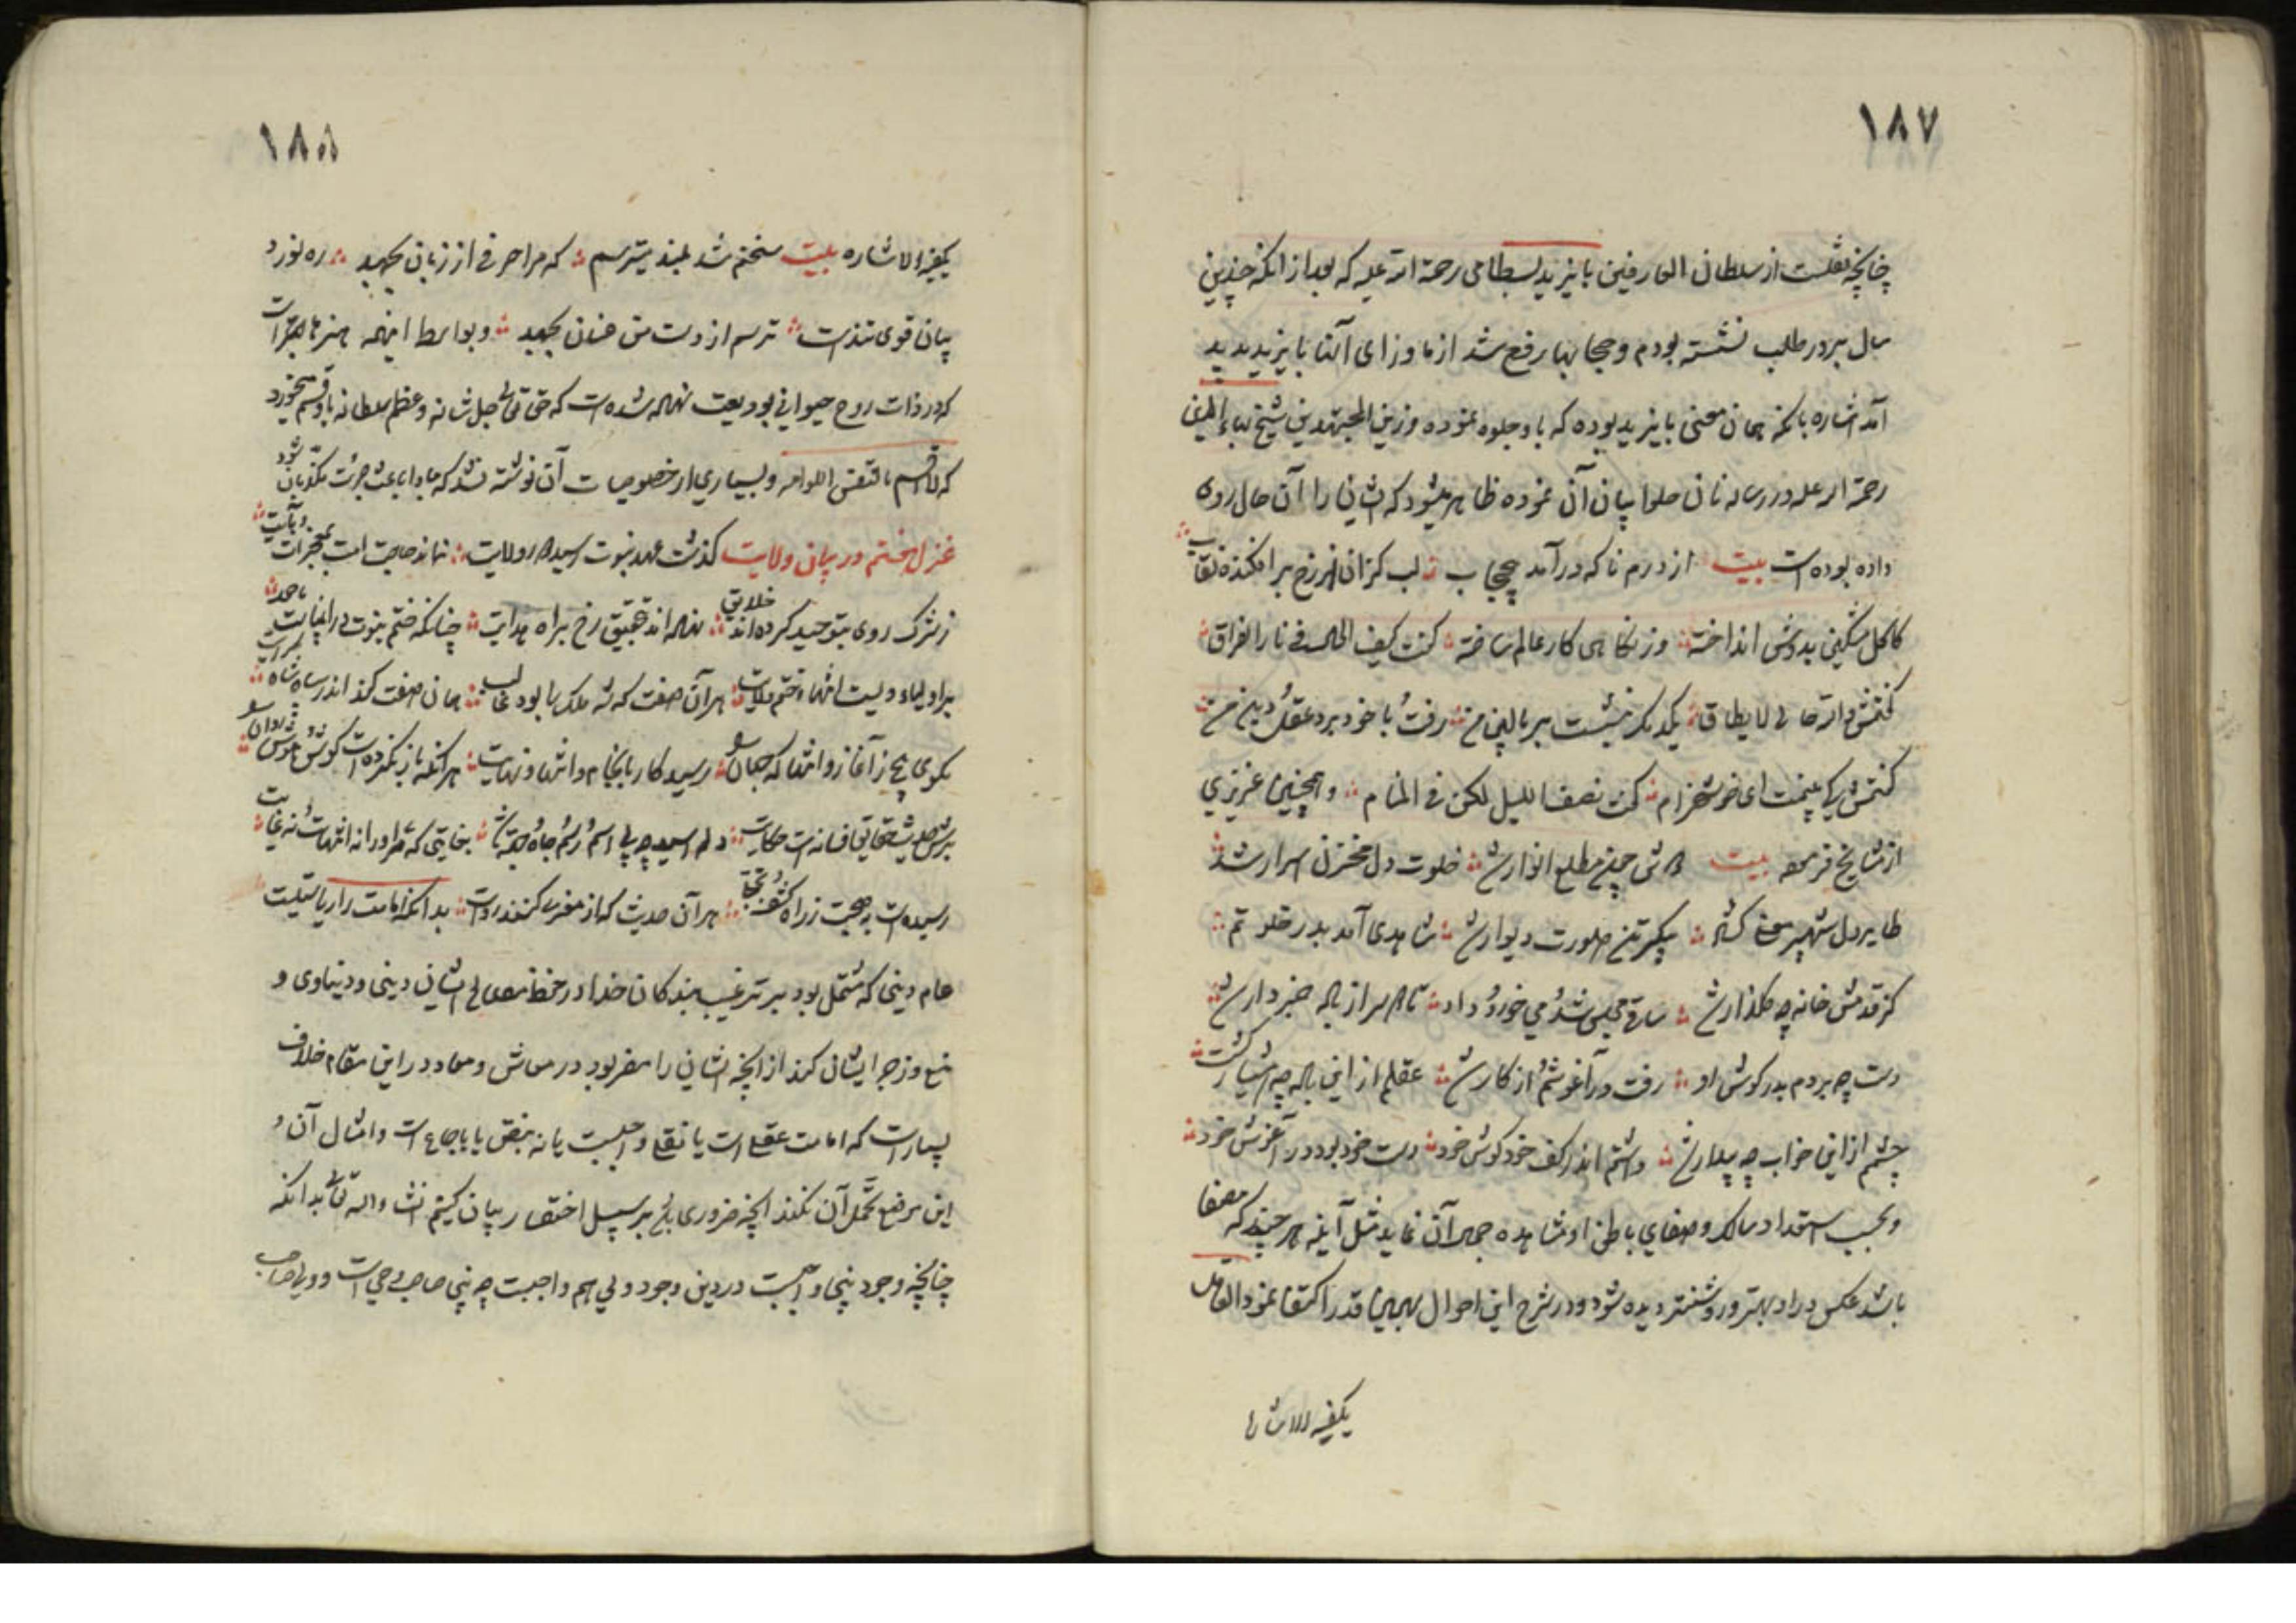 ١٨٧
چنانچه نقلست از سلطان العارفین بایزید بسطامی رحمة الله علیه که بعد از آنکه چندین
سال بر در طلب نشسته بودم و حجابها رفع شد از ماورای آن تا بایزید پدید
آمد اشاره بانکه همان معنی بایزید بوده که باو جلوه نموده و زین المجتهدین شیخ بهاء الدین
رحمة الله علیه در رساله نان حلوا بیان آن نموده ظاهر میشود که ایشان را آن حال روی
داده بوده است بیت از درم ناکه درآمد بی حجاب لب کزان از رخ برافکنده نقاب
کاکل مشکین بدوش انداخته وز نکاهی کار عالم ساخته کفت کیف الحال فی نار الفراق
کفتمش والله حالی لا یطاق یکدمک بنشست بر بالین من رفت با خود برد عقل و دین من
کفتمش کی بینمت ای خوشخرام کفت نصف اللیل لکن فی المنام و همچنین عزیزی
از مشایخ فرموده بیت دوش چون مطلع انوار شد خلوت دل مخزن اسرار شد
طایر دل شهپر کشاد پیکر تن صورت دیوار شد شاهدی آمد بدر خلوتم
کز قدمش خانه چو کلزار شد ساقی مجلس شد و می خورد و داد تا دلم از باده خبردار شد
دست چو بردم بدر کوش او رفت در آغوشم و از کار شد عقلم از این باده چو هشیار کشت
چشم از این خواب چو بیدار شد داشتم اندر کف خود کوش خود دست خود بود در آغوش خود
و بحسب استعداد سالک و صفای باطن او مشاهده جمال آن نماید مثل آینه هر چند که مصفا
باشد عکس در او بهتر و روشنتر دیده شود و در شرح این احوال بهمین قدر اکتفا نمود العاقل
یکفیه الاشاره
١٨٨
یکفیه الاشاره بیت سخنم شد بلند میترسم که مرا حرفی از زبان بجهد ره نورد
بیان قوی تندست ترسم از دست من عنان بجهد و بواسطه اینهمه هنرها
که در ذات روح حیوانی بودیعت نهاده شده است که حق تعالی جل شانه و عظم سلطانه باو قسم میخورد
که لا اقسم بالنفس اللوامه و بسیاری از خصوصیات آن نوشته نشد که مبادا باعث جرئت مکذبان شود
غزل هفتم در بیان ولایت کذشت عهد نبوت رسید دور ولایت نماند حاجت امت بمعجزات و بآیت
ز شرک روی بتوحید کرده اند خلایق نهاده اند بتحقیق رخ براه هدایت چنانکه ختم نبوت در انبیاست
بر اولیاء ولیست انتهاء و ختم ولایت هر آن صفت که شه ملک را بود غالب همان صفت کند اندر سپاه شاه سرایت
مکوی هیچ ز آغاز و ابتدا که جهان را رسید کار بانجام و انتها و نهایت هر آنکه باز نکرده است کوش هوش
برش حدیث حقایق فسانه است و حکایت دلم اسیر چو بی اسم و رسم و جاه و جهت شد بغایتی که مر او را نه انتهاست نه غایت
رسیده است بصحبت ز راه کشف و تجلی هر آن حدیث که از مغربی کنند روایت بدانکه امامت را ریاستیست
عام دینی که مشتمل بود بر ترغیب بندکان خدا در حفظ مصالح ایشان دینی و دنیاوی و
منع و زجر ایشان کند از آنچه ایشان را مضر بود در معاش و معاد در این مقام خلاف
بسیار است که امامت عقلی است یا نقلی و واجبست یا نه بنص یا باجماع است و امثال آن و
این موضع تحمل آن نکند آنچه ضروری بود بر سبیل اختصار بیان کنیم انشاء الله تعالی بدانکه
چنانچه وجود نبی واجبست در دین وجود ولی هم واجبست چه نبی صاحب وحی است و ولی صاحب